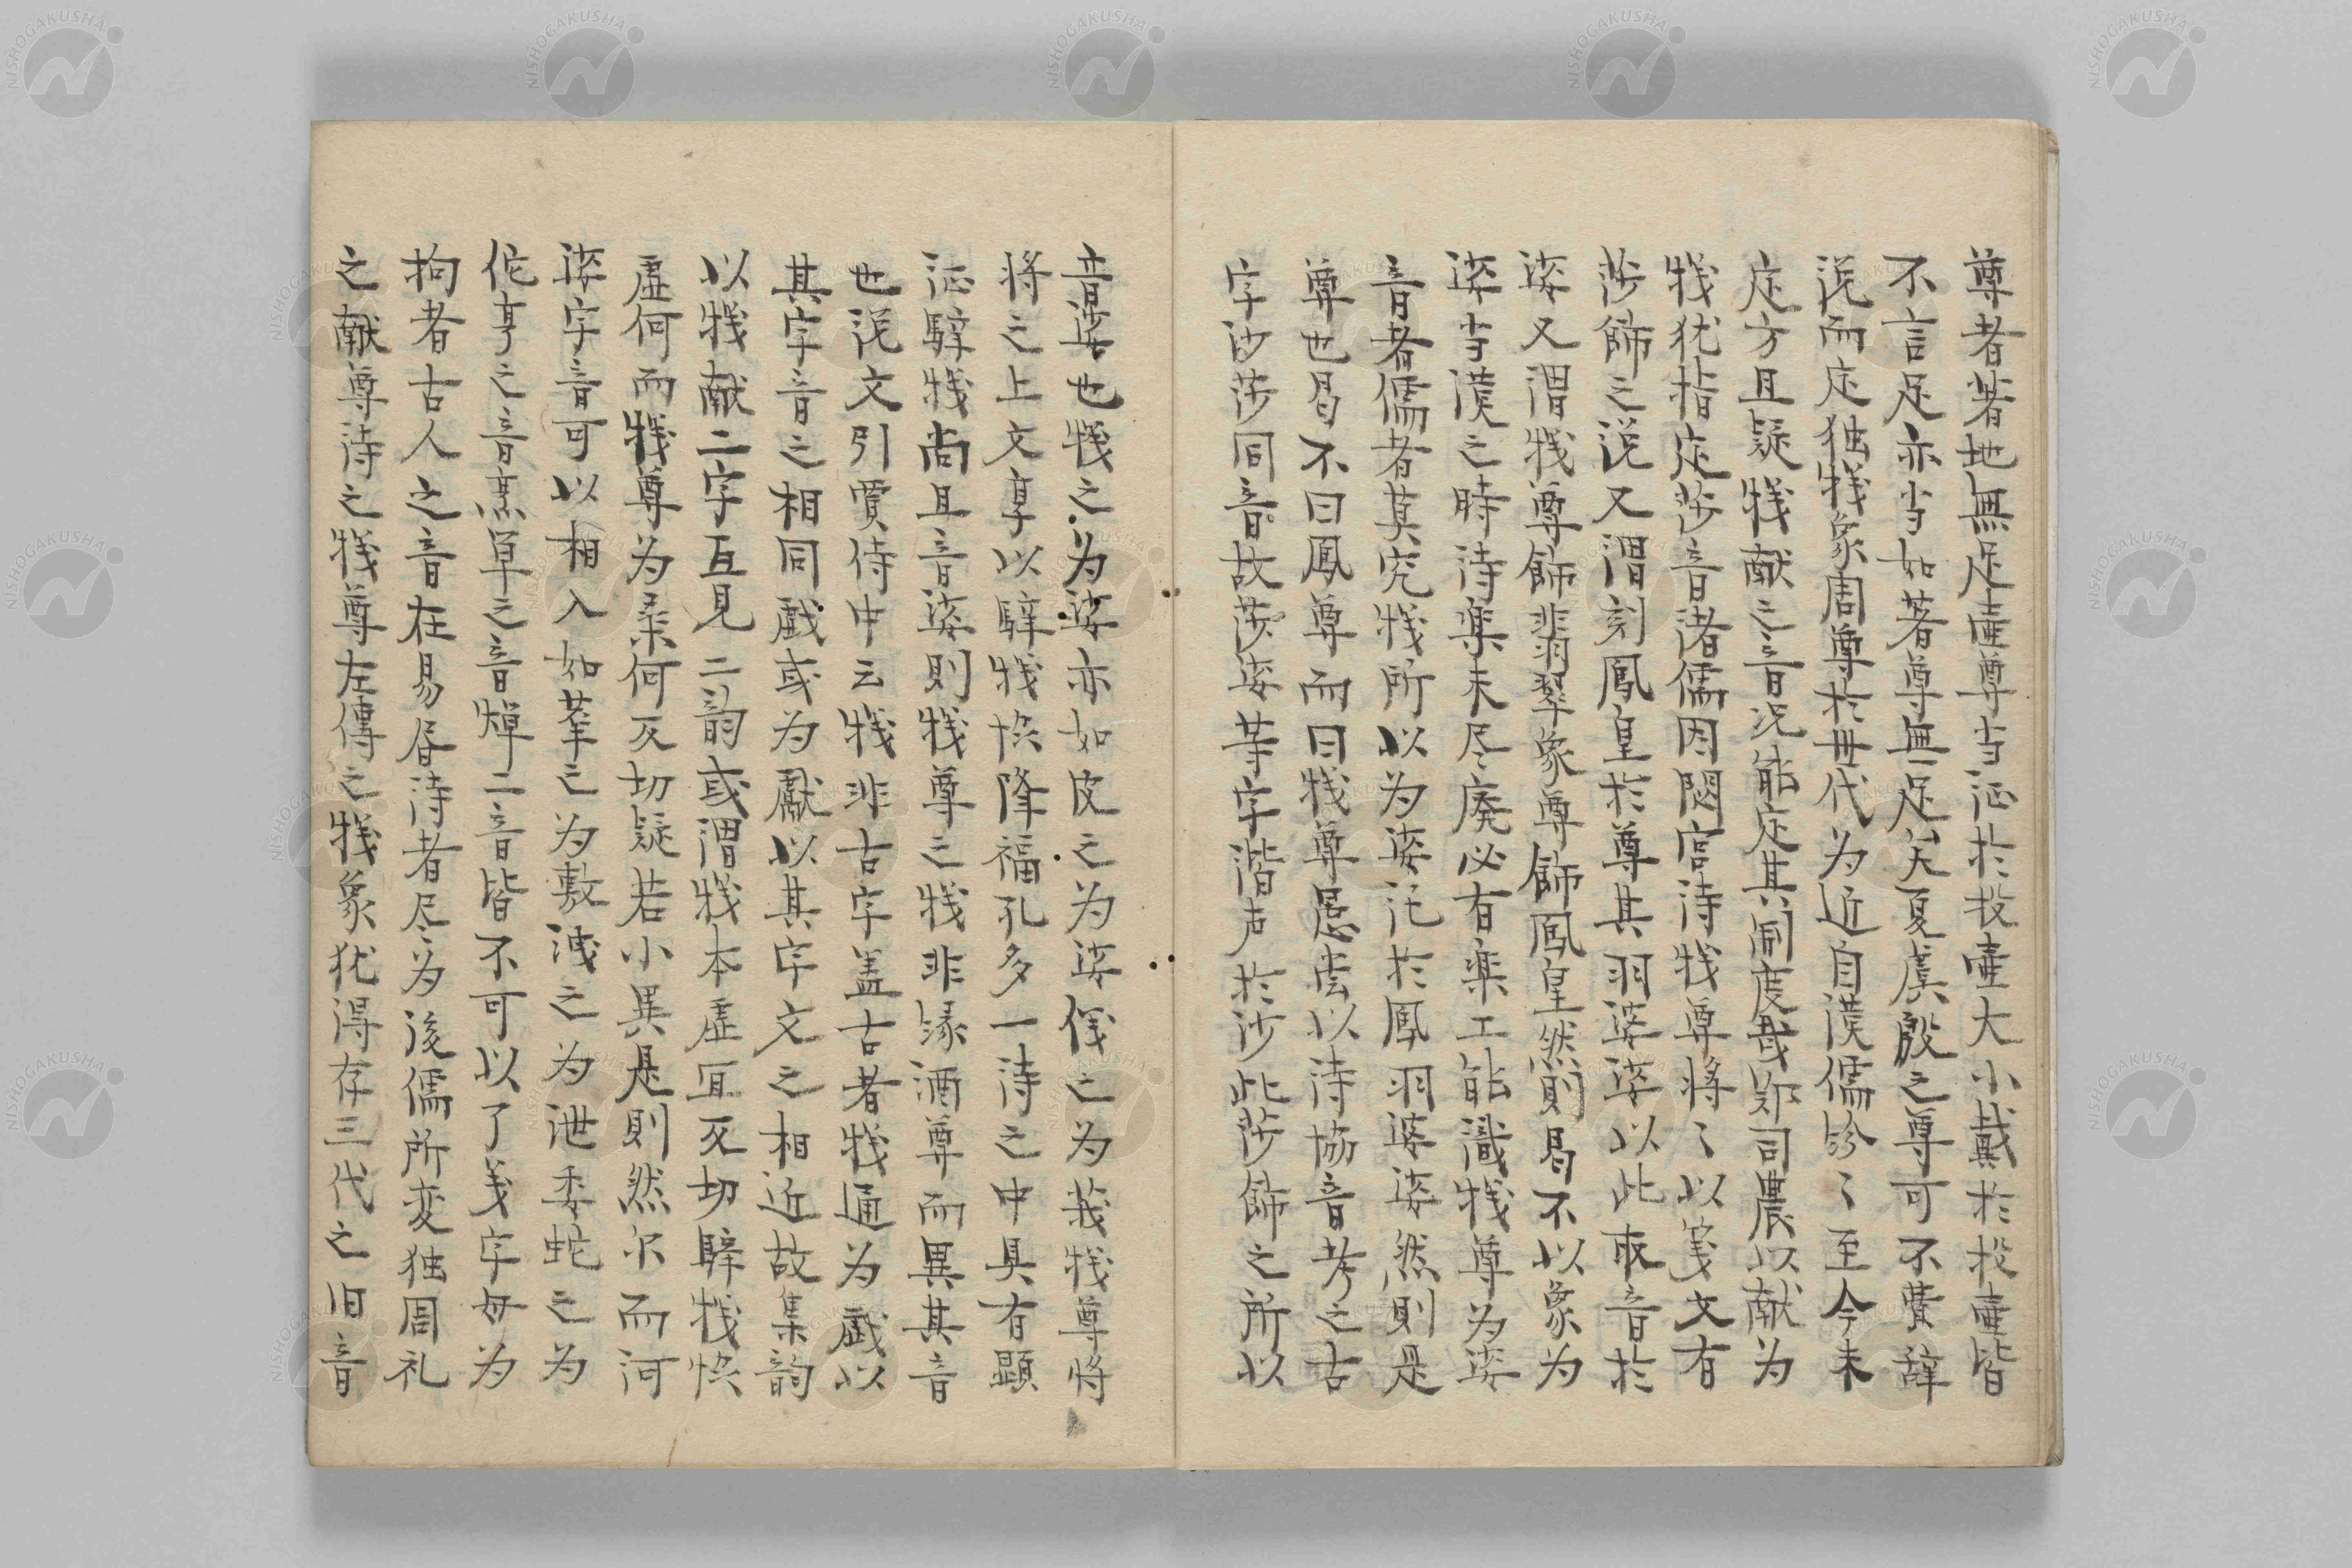 尊者著地無足壷尊当泝於投壷大小戴於投壷皆
不言足亦当如著尊無足矣夏虞殷之尊可不費辞
説而定独犠象周尊於世代為近自漢儒紛〻至今未
定方且疑犠献之音況能定其制度哉鄭司農以献為
犠犹指定莎音諸儒因閟宮詩犠尊将〻以箋文有
莎飾之説又謂刻鳳皇於尊其羽婆娑以此取音於
娑又謂犠尊飾翡翠象尊飾鳳皇然則曷不以象為
娑当漢之時詩楽未尽廃必有楽工能識犠尊為娑
音者儒者莫究犠所以為娑託於鳳羽婆娑然則是
尊也曷不曰鳳尊而曰犠尊愚嘗以詩協音考之古
字沙莎同音故莎娑等字諧声於沙此莎飾之所以
音娑也犠之為娑亦如皮之為婆儀之為莪犠尊将
将之上文享以騂犠恢降福孔多一詩之中具有顕
証騂犠尚且音娑則犠尊之犠非縁酒尊而異其音
也説文引賈侍中云犠非古字盖古者犠通為戯以
其字音之相同戯或為獻以其字文之相近故集韵
以犠献二字互見二韵或謂犠本虚宜反切騂犠恢
虚何而犠尊為桑何反切疑若小異是則然尓而河
娑字音可以相入如華之為敷洩之為泄委蛇之為
佗亨之音烹單之音焯二音皆不可以了義字毎為
拘者古人之音在易昏詩者尽為後儒所変独周礼
之献尊詩之犠尊左傳之犠象犹得存三代之旧音
NISHOGAKUSHA